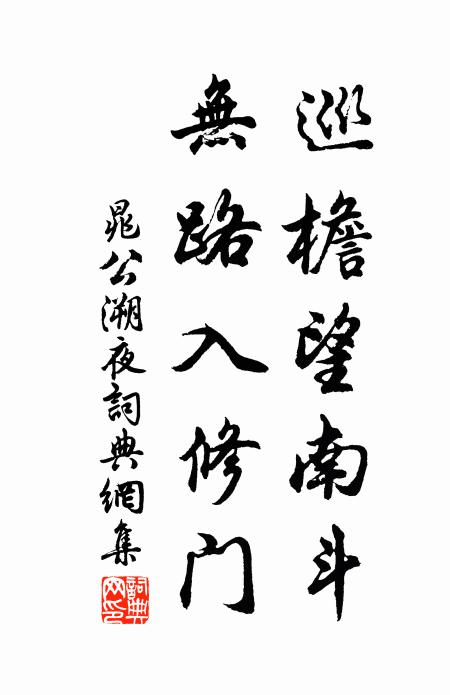 巡檐望南斗
無路入修門
晁公溯夜詞典網集
詞典
网印